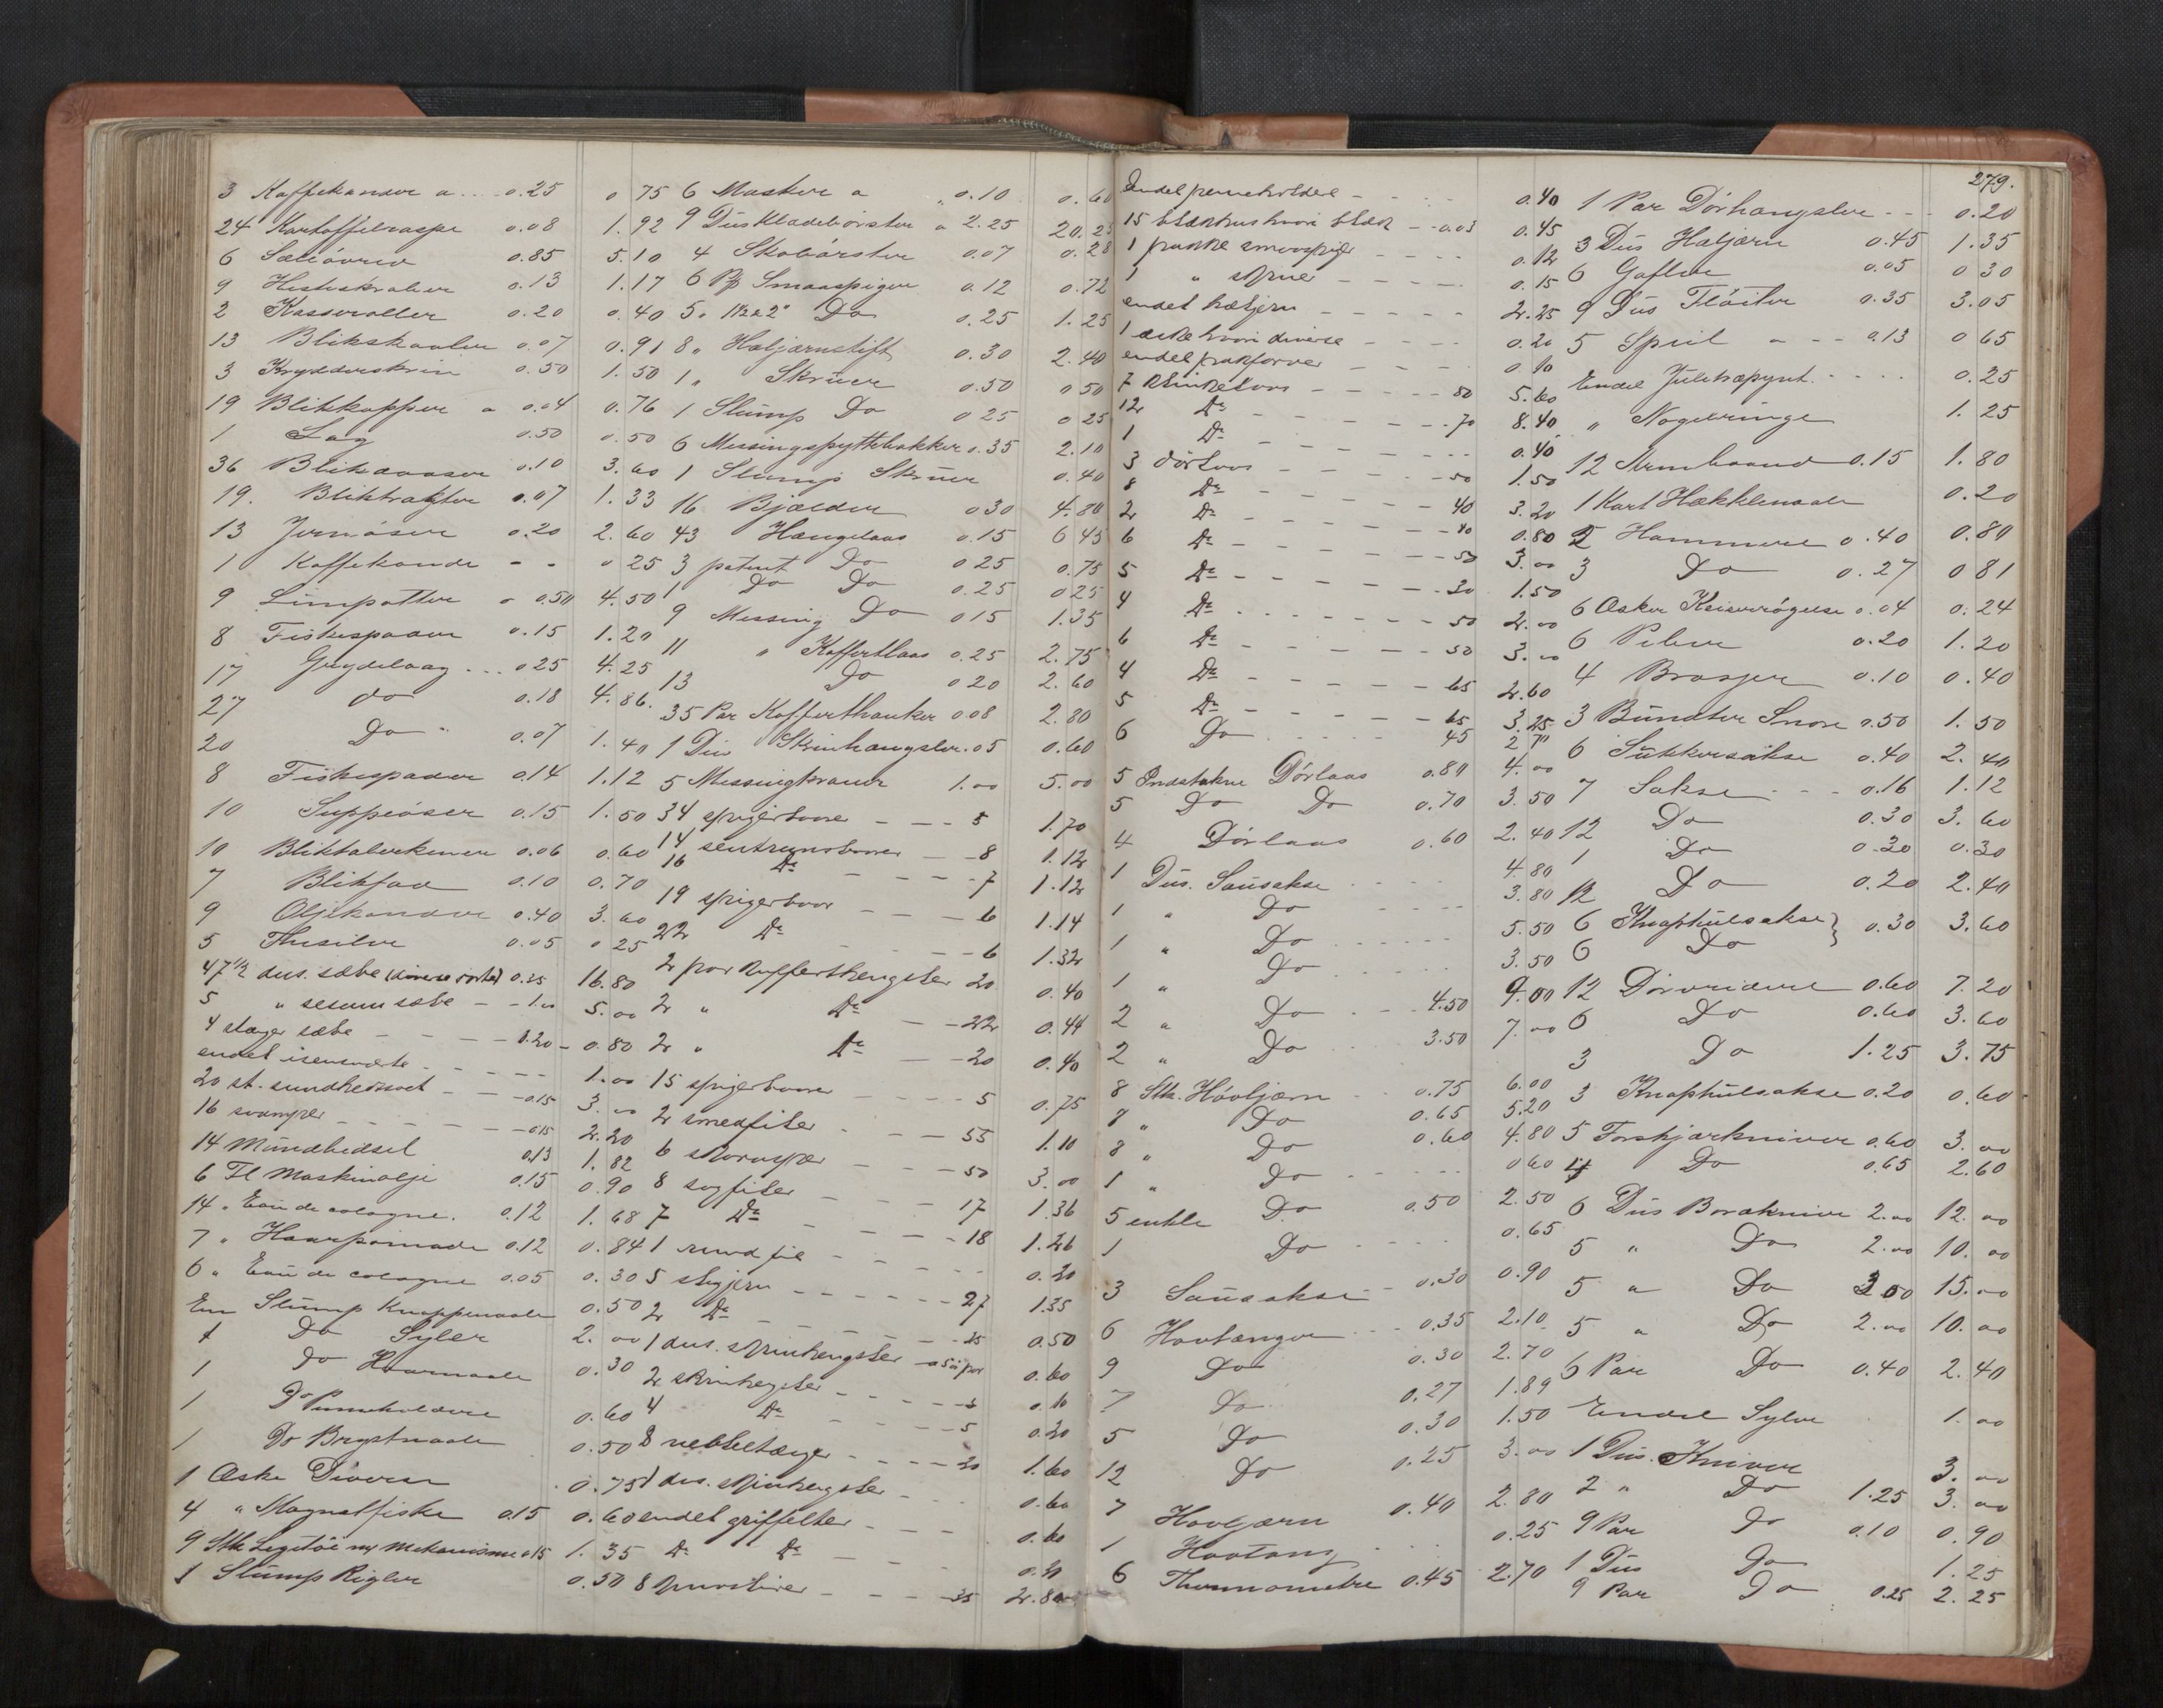 3 Kaffekander a . . . 0.25 0 75
24 Kartoffelraspe 0.08 1.92
6 0.85 5.10
9 Hesteskraber 0.13 1.17
2 Kasseroller 0.20 0.40
13 Blikskaaler 0.07 0.91
3 Krydderskrin 0.50 1.50
19 Blikkopper a 0.04 0.76
1 Lag 0.50 0.50
36 Blikdaaser 0.10 3.60
19. Bliktragter 0.07 1.33
13 0.20 2.60
1 Kaffekande - - 0 25
9 Limpotter a 0.50 4.50
8 Fiskespader 0.15 1.20
17 Grydelaag . . . 0 25 4.25
27 do 0.18 4.86.
20 Do " 0.07 1.40
8 Fiskespader 0.14 1.12
10 Suppeøser 0.15 1.50
10 Bliktalerkener 0.06 0.60
7 Blikfad 0.10 0.70
9 Oljekander 0.40 3.60
5 Thesiler 0.05 0 25
47 1/2 dus. sæbe (diverse sorter) 0.35 16.80
5 " sesam sæbe - - 1.00 5.00
4 stænger sæbe - - - - 0.20 - 0.80
endel - - - - 1.00
20 st. - - - 0.15 3.00
16 svamper - - - - - 0.15 2.20
14 Mundbedsel 0.13 1.82
6 Fl Maskinolje 0.15 0.90
14 " Eau de cologne. 0.12 1.68
7 " Haarpomade 0.12 0.84
6 " Eau de cologne 0.05 0.30
Em Slump Knappenaale 0.50
1 Do Syler 2.00
1 Do Haarnaale 0.30
1 Do Penneholdere 0.60
1 Do Brystnaale 0.50
1 Æske Diverse 0.75
4 " Magnetfiske 0.15 0.60
9 Stk Legetøi m/ Mekanisme 0.15 1.35
1 Slump Rigler 0.50
6 Masker a " 0.10 0.60
9 Dus Kladebørster a 2.25 20.25
4 Skobørster 0.07 0.28
6 Pk Smaaspiger 0.12 0.72
5 " 1 1/2 a 2" Do 0.25 1.25
8 " Hæljærnstift 0.30 2.40
1 " Skruer 0.50 0 50
1 Slump Do 0 25 0 25
6 Messingspyttebakker 0.35 2.10
1 Slump Skruer 0.40
16 Bjælder 0 30 4.80
43 Hængelaas 0.15 6 45
3 patent Do 0 25 0.75
1 Do Do 0.25 0 25
9 Messing Do 0 15 1.35
11 " Koffertlaas 0.25 2.75
13 Do 0 20 2.60
35 Par Kofferthanker 0.08 2.80
1 Dus Skrinhængsler. 05 0.60
5 Messingkraner 1.00 5.00
34 spigerborer - - - 5 1.70
14 sentrumsborer - - 8 1.12
16 Do - - - - 7 1.12
19 spigerborr - - - 6 1.14
22 Do - - - 6 1.32
2 par kufferthengsler 20 0.40
2 " Do - - 22 0.44
2 " Do - - 20 0.40
15 spigerborer - - - - 5 0.75
2 smedfiler - - - 55 1.10
6 skorasper - - - 50 3.00
8 sagfiler - - - 17 1.36
7 Do - - - 18 1.26
1 rund fil - - - - 0.20
5 stegjern - - - - - - 27 1.35
2 Do - - - - - - 25 0.50
1 dus. skrinhengsler - 0 5 0/ par 0.60
2 skrinhengsler - - - - 5 0.10
4 Do - - - - 5 0.20
8 nebbeltænger - - - - 20 1.60
1 dus. skrinhengsler - 0.60
endel griffelter - - - 0.60
Do Do - - - 0.30
8 - - - 35 2.80
279.
Endel penneholdere - - - - 0.40
15 blækhus hvori blæk - - 0.03 0.45
1 pakke smaaspiger - - - - 0.12
1 " skruer - - - - 0.15
endel hæljern - - - - - 2.25
1 æske hvori diverse - - - - 0.20
endel 0.10
7 klinkelaas - - - - - 80 5.60
12 Do - - - - - 70 8.40
1 Do - - - - - 0.40
3 dørlaas - - - - - 50 1.50
8 Do - - - - - 40 3.20
2 Do - - - - - 40 0.80
6 Do - - - - - 50 3.00
5 Do - - - - - - 30 1.50
4 Do - - - - - - 50 2.00
6 Do - - - - - 50 3.00
4 Do - - - - - 65 2.60
5 Do - - - - - 65 3.25
6 Do . . . . . 45 2 70
5 Indstukne Dørlaas 0.80 4.00
5 Do Do 0.70 3.50
4 Dørlaas 0.60 2.40
1 Dus. Sausakse . . . . 4.80
1 " Do - - - - 3.80
1 " Do . . . . . . 5.50
1 " Do 3.50
2 " Do . . . 4.50 9.00
2 " Do . . . 3.50 7.00
8 Stk. Høvljærn . . . 0.75 6.00
8 " Do 0.65 5.20
8 " Do 0.60 4.80
1 " Do . . . . 0 60
5 enkle Do 0.50 2.50
1 Do . . . . 0.65
3 Sausakse - 0.30 0.90
6 Hovtænger - - 0.35 2.10
9 Do 0.30 2.70
7 Do 0.27 1.89
5 Do 0.30 1.50
12 Do 0.25 3.00
7 Hovljærn 0.40 2.80
1 Hovtang . . . 0.25
6 Thermometre 0.45 2.70
1 Par Dørhængsler - - - 0.20
3 Dus Hæljærn 0.45 1.35
6 Gafler 0.05 0 30
9 Dus Fløiter 0.35 3.05
5 Speil a - - 0.13 0 65
Endel Juletræpynt . . . . . 0.25
" Nøgelringe 1.25
12 Armbaand 0.15 1.80
1 Kart Hæklenaale 0.20
2 Hammere 0.40 0.80
3 Do 0.27 0 81
6 Æsker Keiserrøgelse 0.04 0.24
6 Piber 0.20 1.20
4 Brosjer 0.10 0.40
3 Bundter Snore 0.50 1.50
6 Sukkersakse 0.40 2.40
7 Sakse - - - 0.16 1.12
12 Do 0.30 3.60
1 Do 0.30 0.30
12 Do 0.20 2.40
6 Knaphulsakse } 0.30 3.60
6 Do
12 Dørvridere 0.60 7.20
6 Do 0.60 3.60
3 Do 1.25 3.75
3 Knaphulsakse 0.20 0.60
5 Forskjærkniver 0.60 3.00
4 Do 0.65 2.60
6 Dus Bordkniver 2.00 12.00
5 " Do 2.00 10.00
5 " Do 3 00 15.00
5 " Do 2.00 10.00
6 Par Do 0.40 2.40
Endel Syler 1.00
1 Dus. Kniver 3.00
2 " Do 1.25 3.00
9 Par Do 0.10 0.90
1 Dus Do 1.25
9 Par Do 0.25 2.25